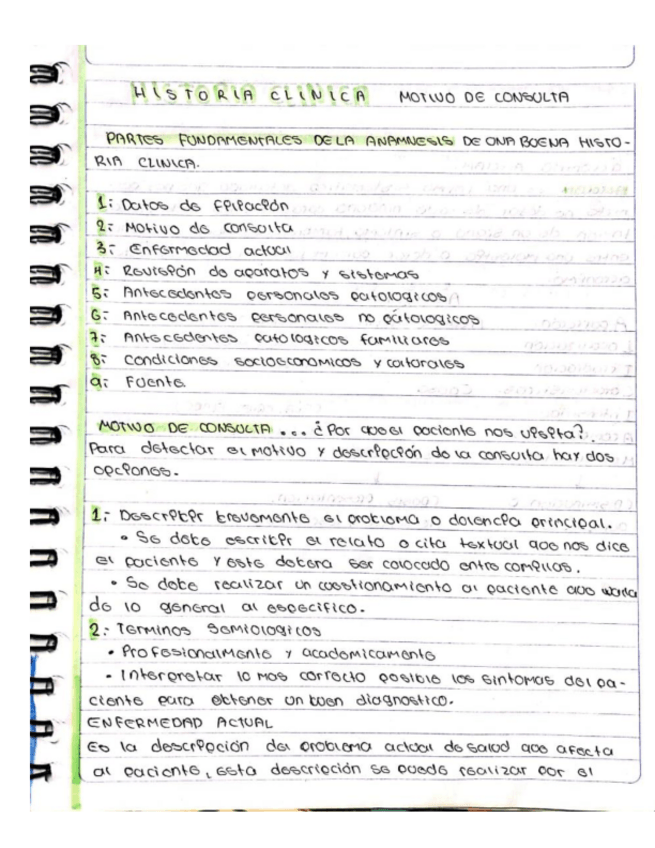 HISTORIA CLINICA MOTIVO DE CONSULTA
PARTES FUNDAMENTALES DE LA ANAMNESIS DE UNA BUENA HISTO-
RIA CLINICA.
1: Datos de filiación
2: Motivo de consulta
3: Enfermedad actual
4: Revisión de aparatos y sistemas
5: Antecedentes personales patologicos
6: Antecedentes personales no patologicos
7: Antecedentes patologicos familiares
8: Condiciones socioeconomicos y culturales
9: Fuente
MOTIVO DE CONSULTA ... ¿Por que el paciente nos visita?
Para detectar el motivo y descripción de la consulta hay dos
opciones.
1: Describir brevemente el problema o dolencia principal.
• Se debe escribir el relato o cita textual que nos dice
el paciente y este debera ser colocado entre comillas.
• Se debe realizar un cuestionamiento al paciente que valla
de lo general al especifico.
2: Terminos Semiologicos
• Profesionalmente y academicamente
• Interpretar lo mas correcto posible los sintomas del pa-
ciente para obtener un buen diagnostico.
ENFERMEDAD ACTUAL
Es la descripción del problema actual de salud que afecta
al paciente, esta descripción se puede realizar por el